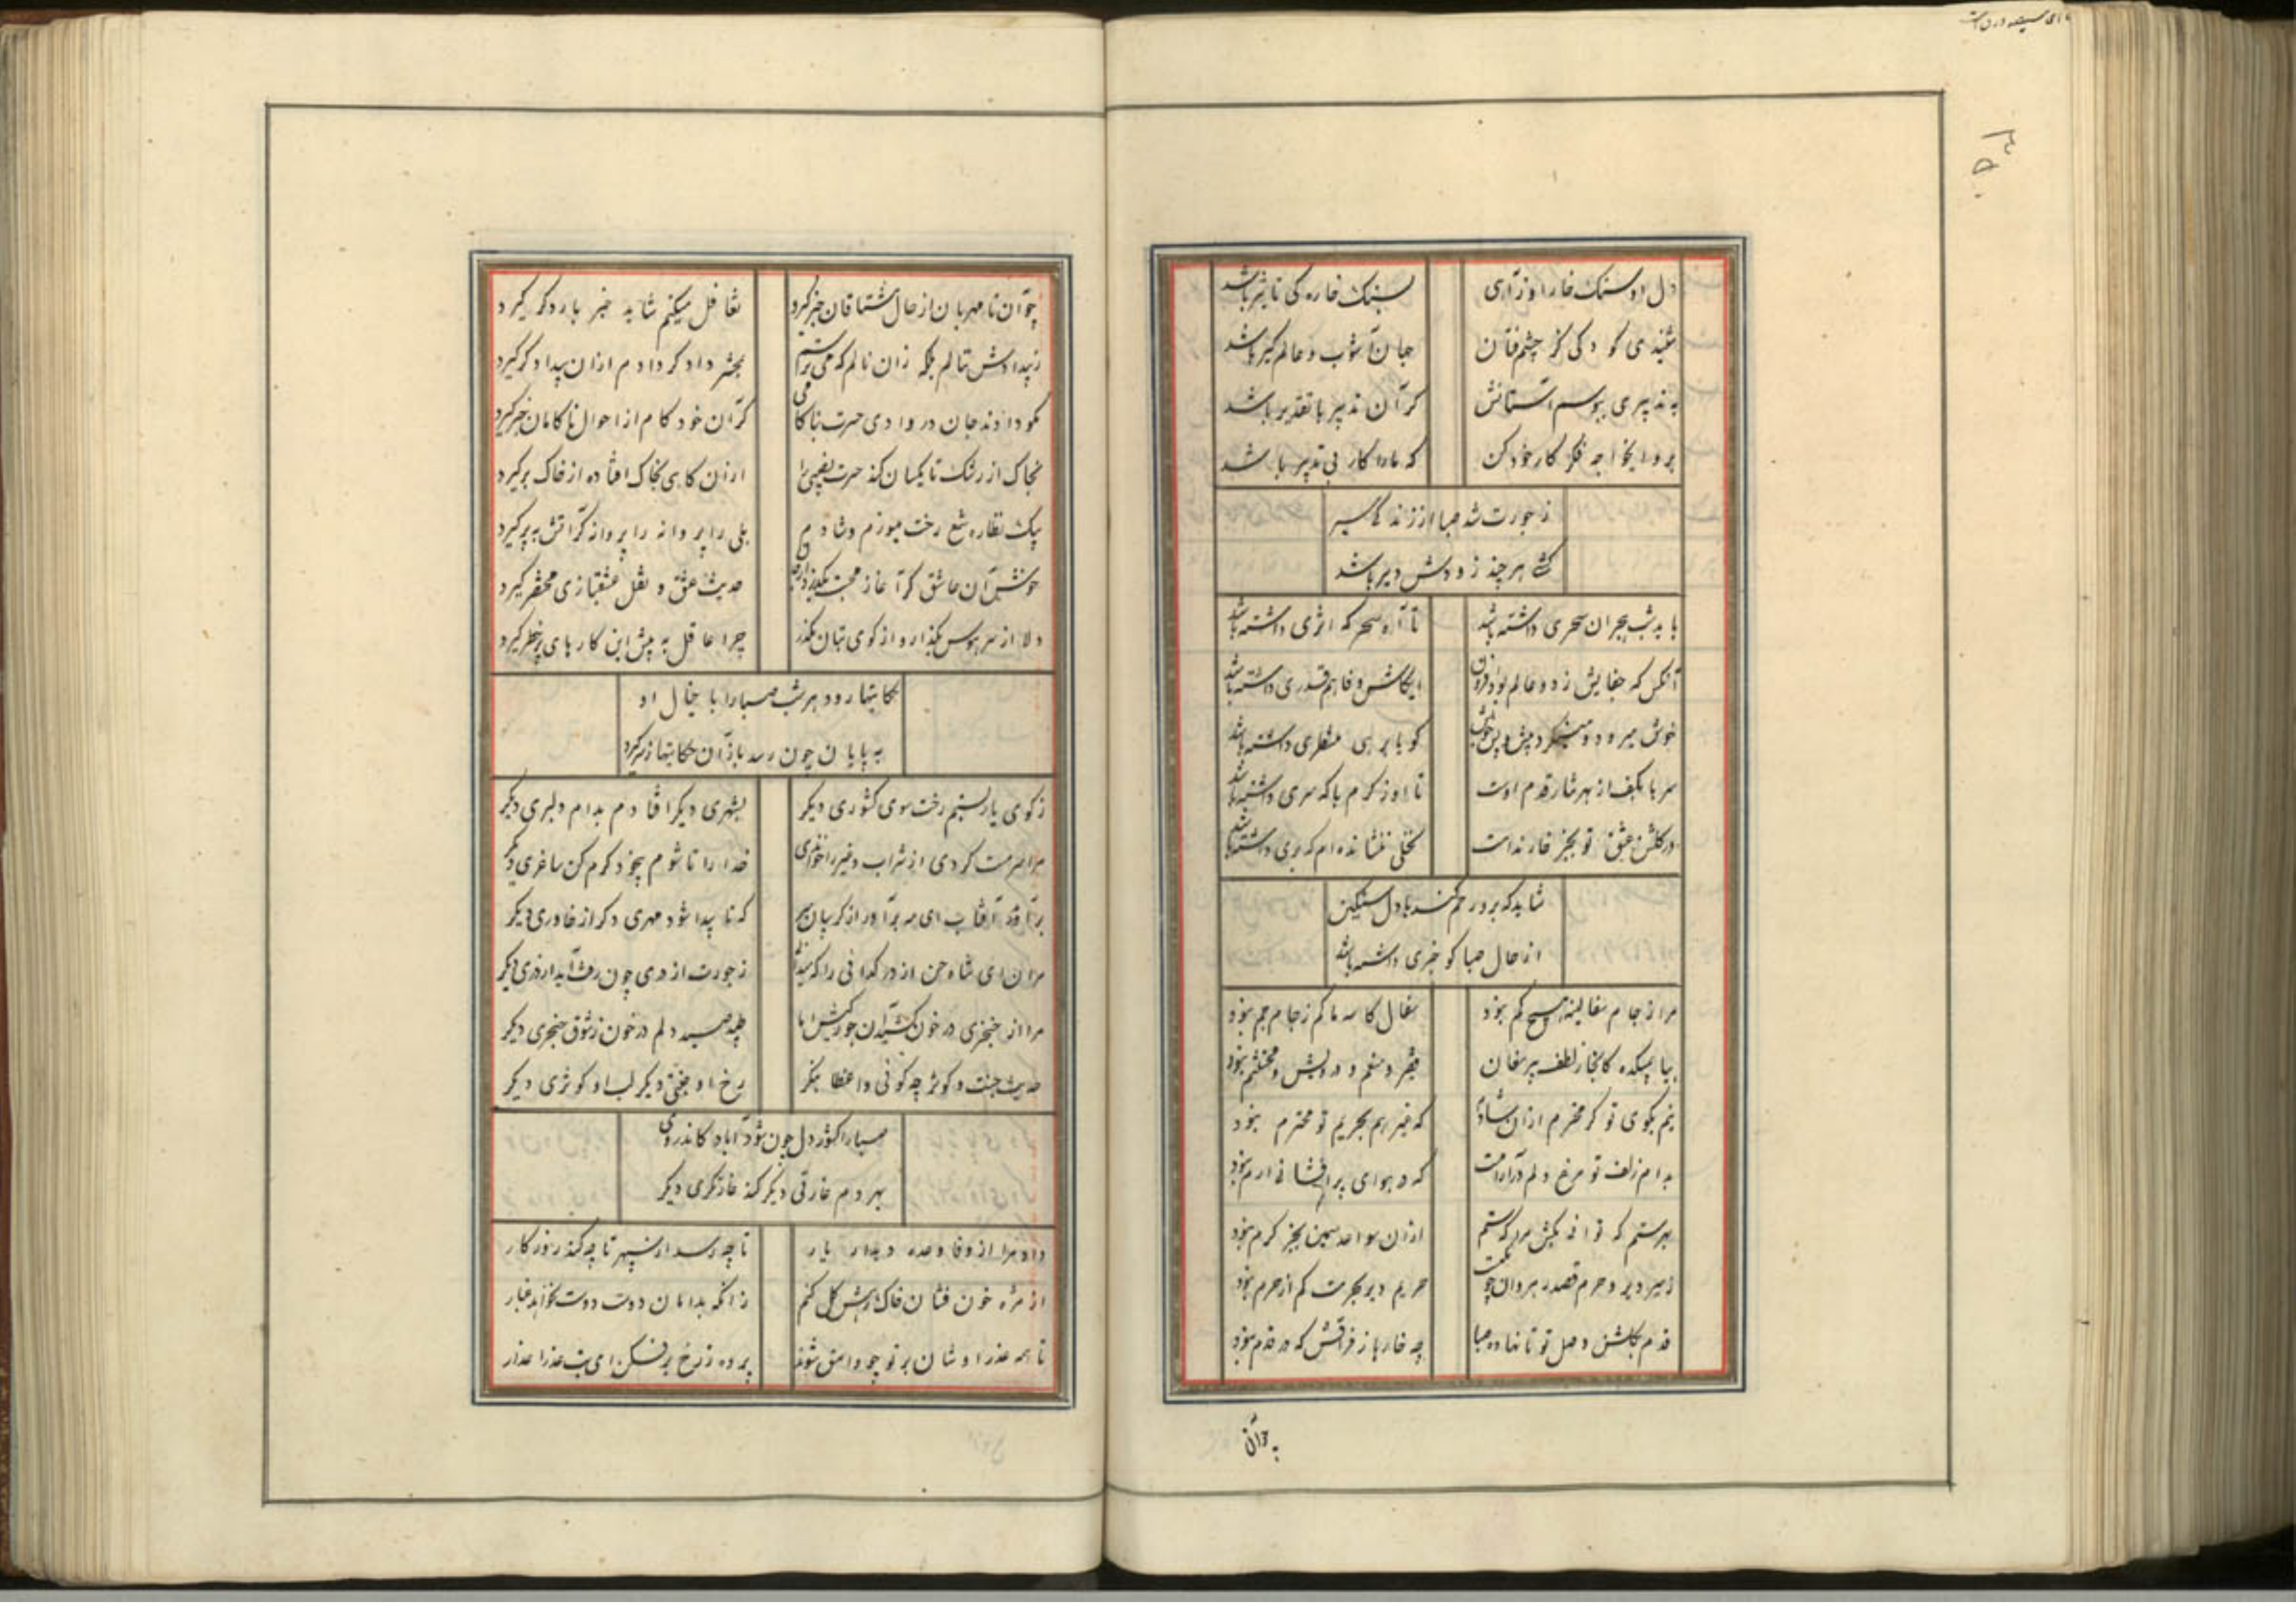 دل او سنک خارا و زاری
بسنک خاره کی تاثیر باشد
شنیدی کودکی کز چشم فتان
جهان آشوب و عالم کیر باشد
به تدبیری ببوسم آستانش
کر آن تدبیر با تقدیر باشد
برو ایخواجه فکر کار خود کن
که مارا کار بی تدبیر باشد
ز جورت شد صبا از زندکی سیر
کشی هر چند زودش دیر باشد
یا رب شب هجران سحری داشته باشد
تا آه سحرکه اثری داشته باشد
آنکس که جفایش ز دو عالم بود افزون
ایکاش وفا هم قدری داشته باشد
خوش میرود و مینکرد پیش و پس خویش
کویا بر هی منتظری داشته باشد
سرها بکف از بهر نثار قدم اوست
تا او ز کرم با که سری داشته باشد
در کلشن عشق تو بجز خار نداست
نخلی ننشانده ام که بری داشته باشد
شاید که برو رحم کند با دل سنکین
از حال صبا کو خبری داشته باشد
مرا ز جام سفالینه هیچ کم نبود
سفال کاسه ما کم ز جام جم نبود
بیا بمیکده کانجا ز لطف پیر مغان
فقیر و منعم و درویش و محتشم نبود
نیم بکوی تو کر محترم ازان شادم
که غیر هم بحریم تو محترم نبود
بدام زلف تو مرغ دلم آرامست
که در هوای پر افشانی ارم نبود
بهر ستم که توانی بکش مرا که ستم
ازان سواعد سیمین بجز کرم نبود
ز سیر دیر و حرم قصد رهروان چو یکیست
حریم دیر بحرمت کم از حرم نبود
قدم بکلشن وصل تو تا نهاده صبا
چه خارها ز فراقش که در قدم نبود
چو آن
چو آن نامهربان از حال مشتاقان خبر کیرد
تغافل میکنم شاید خبر بار دکر کیرد
ز بیدادش ننالم بلکه زان نالم که می ترسم
بحشر دادکر دادم ازان بیدادکر کیرد
نمودادند جان در وادی حسرت بناکامی
کر آن خودکام از احوال ناکامان خبر کیرد
بخاک از رشک تا یکسان کند حسرت نصیبی را
ازان کاهی بخاک افتاده از خاک برکیرد
بیک نظاره شمع رخت میسوزم و شادم
بلی را پروانه را پروانه کر آتش به پر کیرد
خوش آن عاشق کز آغاز محبت بکذرد از جان
حدیث عشق و نقل عشقبازی مختصر کیرد
دلا از سر هوس بکذار و از کوی بتان بکذر
چرا عاقل به پیش این کارهای پر خطر کیرد
حکایتها رود هر شب صبا را با خیال او
به پایان چون رسد باز آن حکایتها ز سر کیرد
ز کوی یار بستم رخت سوی کشوری دیکر
بشهری دیکر افتادم بدام دلبری دیکر
مرا سرمست کردی از شراب و غیر را خواندی
خدا را تا شوم بیخود کرم کن ساغری دیکر
برآمد آفتاب ای مه برآور از کریبان سر
که تا پیدا شود مهری دکر از خاوری دیکر
مران ای شاه حسن از در کدائی را که
ز جورت از دری چون رفت آید از دری دیکر
مرا از خنجری در خون کشید آن جورکیش اما
طپد صید دلم در خون ز شوق خنجری دیکر
حدیث جنت و کوثر چه کوئی واعظا بنکر
رخ او جنتی دیکر لب او کوثری دیکر
صبا را کشور دل چون شود آباد کاندر وی
بهر دم غارتی دیکر کند غارتکری دیکر
داد مرا از وفا وعده دیدار یار
تا چه رسد از سپهر تا چه کند روزکار
از مژه خون فشان خاک رهش کل کنم
زانکه بدامان دوست دوست نخواهد غبار
تا همه عذرا وشان بر تو چو وامق شوند
پرده ز رخ برفکن ای بت عذرا عذار